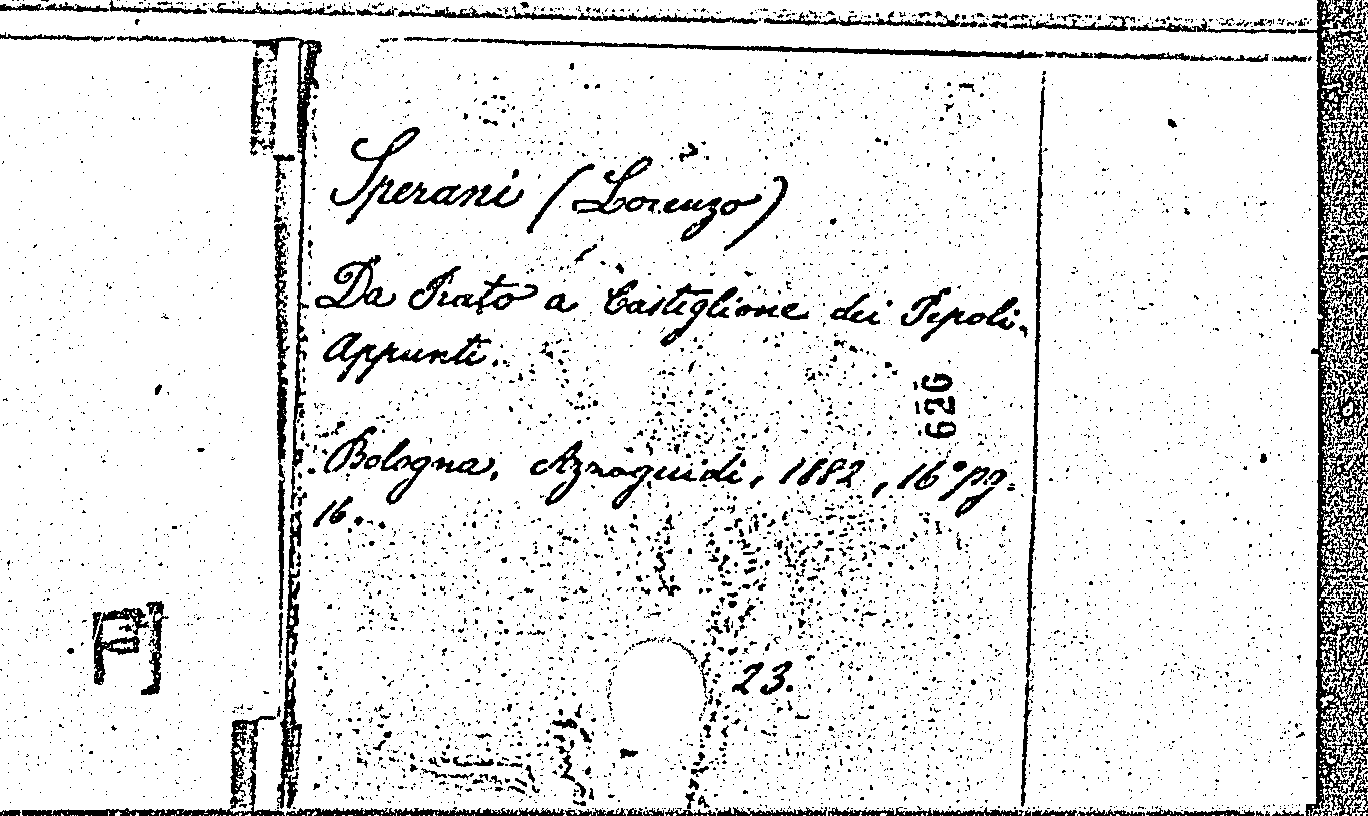 Sperani (Lorenzo)
Da Prato a Castiglione dei Pepoli.
Appunti.
626
Bologna, Aznoguidi, 1882, 16° pg.
16.
23.